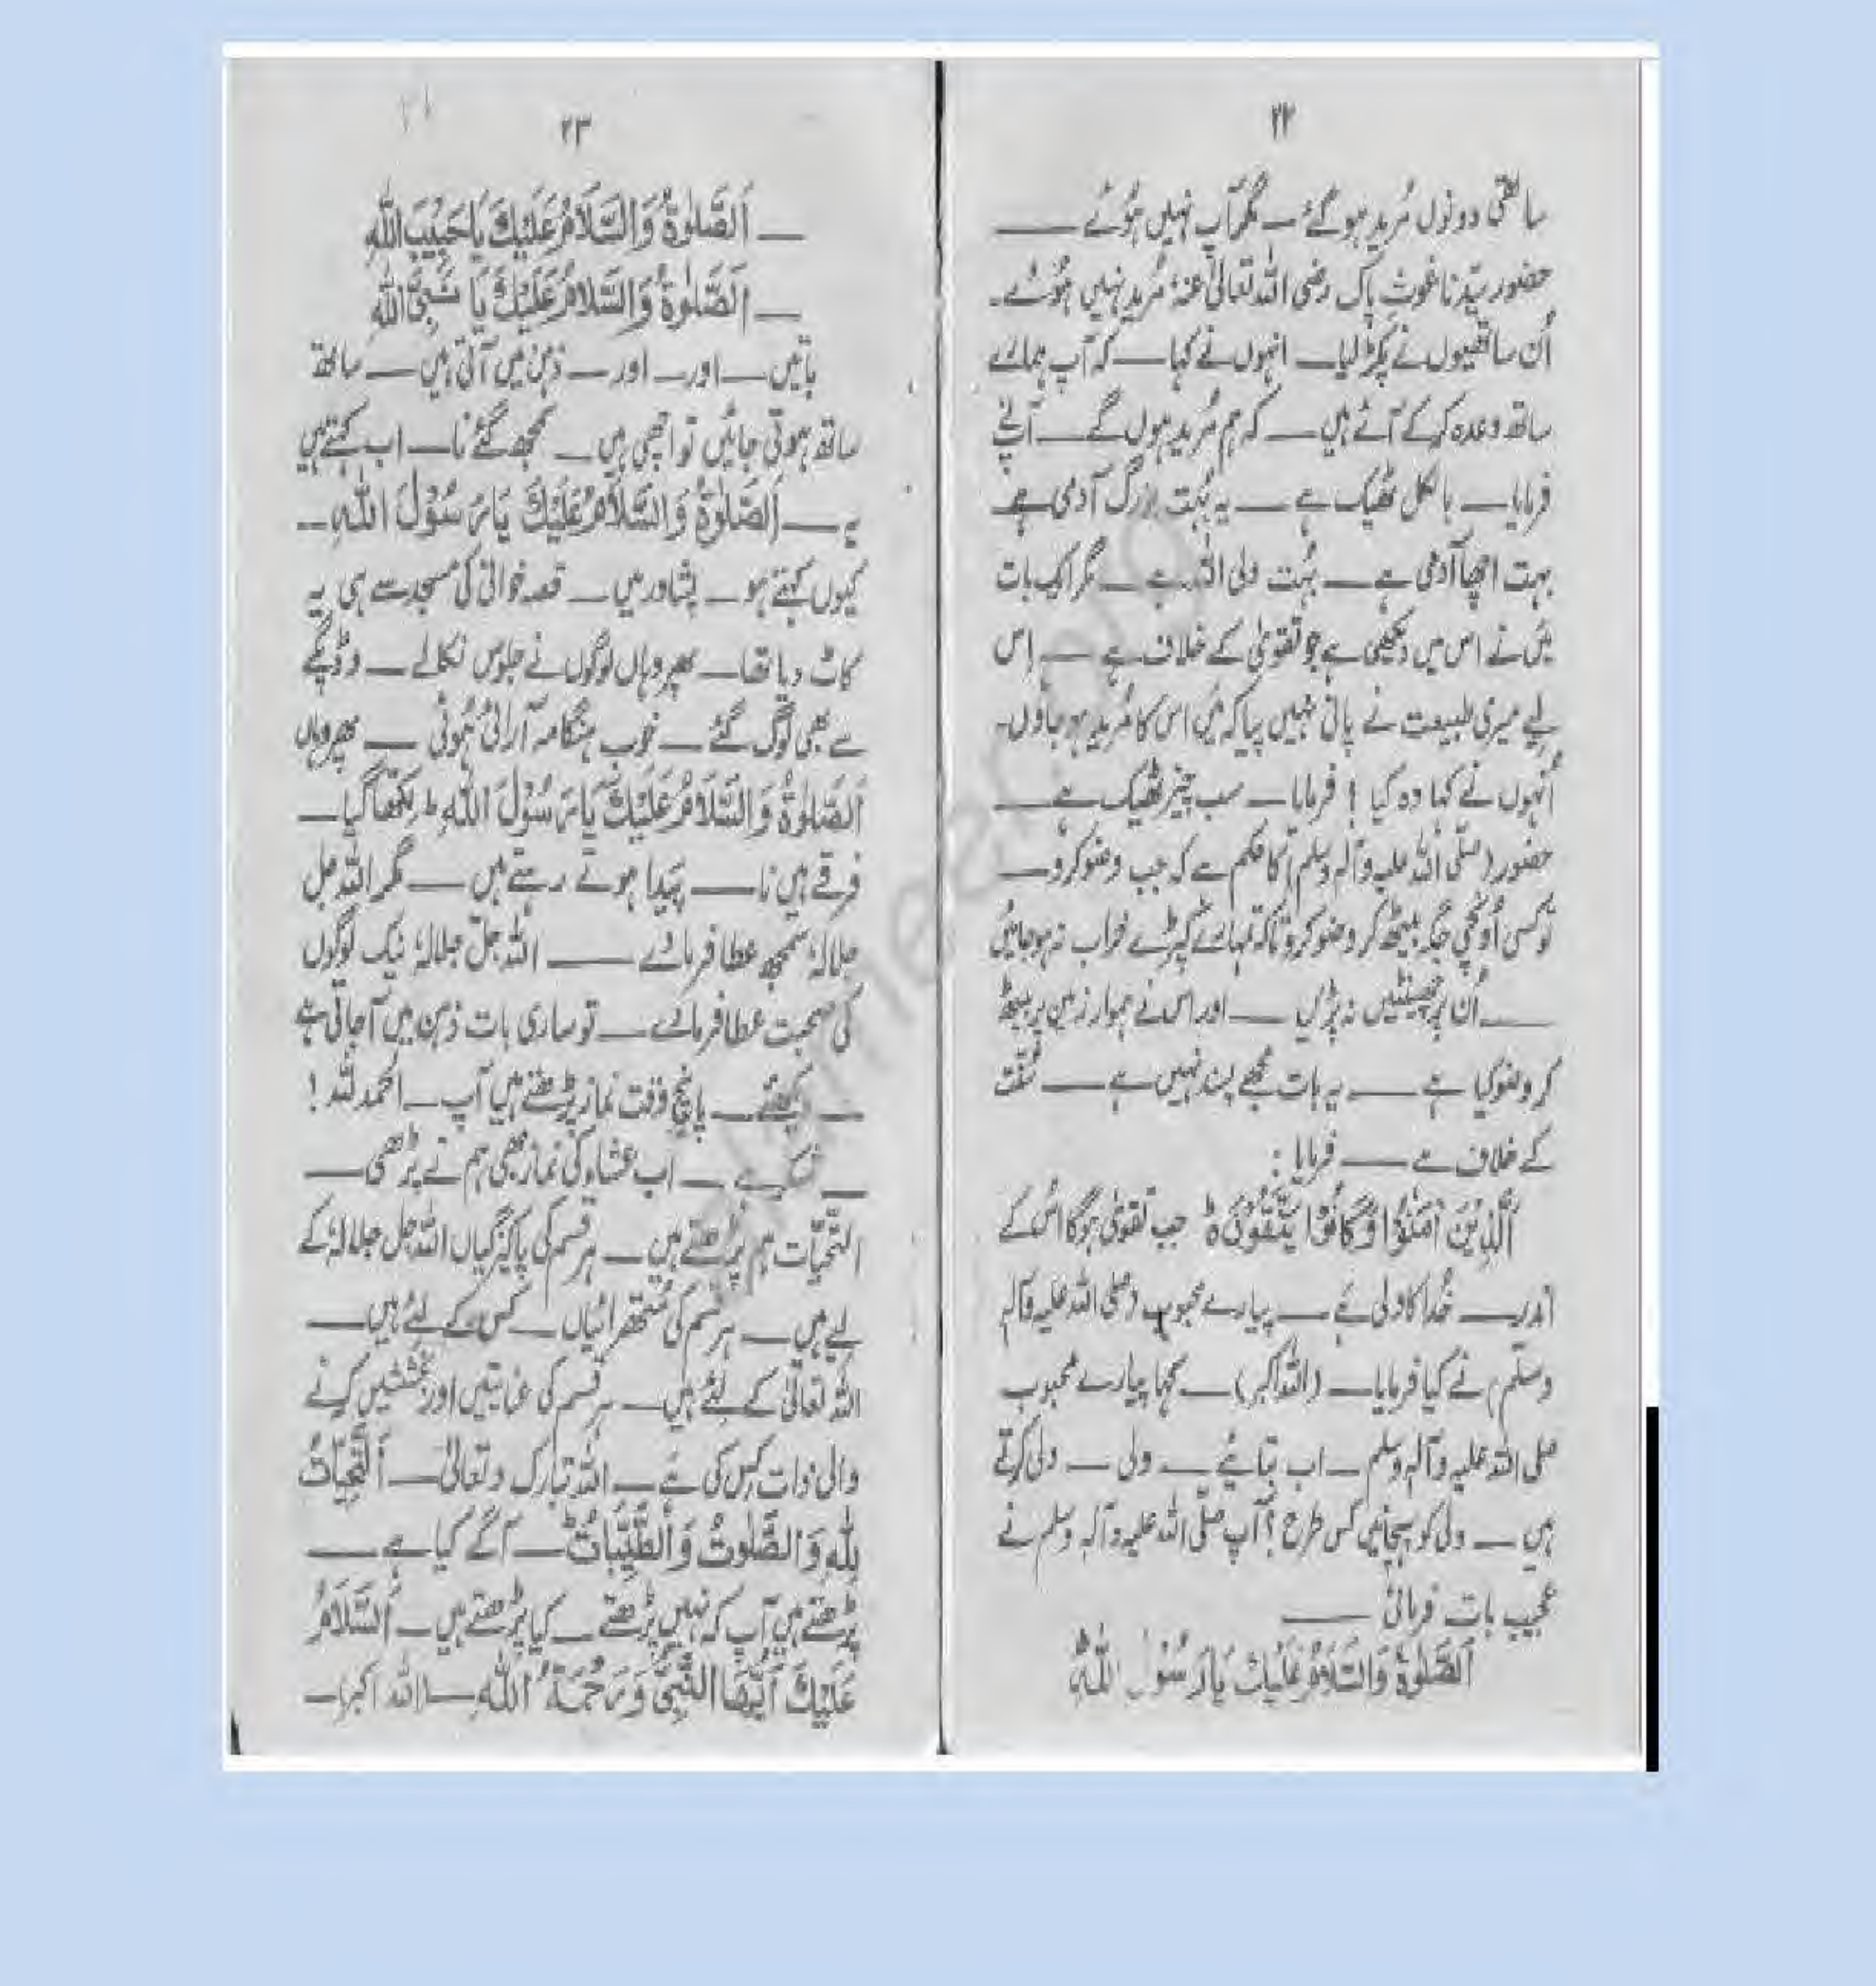 ۲۲
ساتھی دونوں مُرید ہو گئے — مگر آپ نہیں ہُوئے —
حضور سیّدنا غوثِ پاک رضی اللہ تعالیٰ عنہٗ مُرید نہیں ہُوئے۔
اُن ساتھیوں نے پکڑ لیا — انہوں نے کہا — کہ آپ ہمارے
ساتھ وعدہ کر کے آئے ہیں — کہ ہم مُرید ہوں گے — آپ نے
فرمایا — بالکل ٹھیک ہے — یہ بُہت بزرگ آدمی ہے
بہت اچھا آدمی ہے — بُہت ولی اللہ ہے — مگر اک بات
میں نے اس میں دیکھی ہے جو تقویٰ کے خلاف ہے — اِس
لیے میری طبیعت نے پانی نہیں پیا کہ میں اس کا مُرید ہو جاؤں۔
اُنہوں نے کہا وہ کیا ! فرمایا — سب چیز ٹھیک ہے —
حضور (صلّی اللہ علیہ وآلہٖ وسلم) کا حکم ہے کہ جب وضو کرو —
تو کسی اُونچی جگہ بیٹھ کر وضو کرو تاکہ تمہارے کپڑے خراب نہ ہو جائیں
— اُن پر چھینٹیں نہ پڑیں — اور اس نے ہموار زمین پر بیٹھ
کر وضو کیا ہے — یہ بات مجھے پسند نہیں ہے — سُنّت
کے خلاف ہے — فرمایا :
اَلَّذِيْنَ اٰمَنُوْا وَكَانُوْا يَتَّقُوْنَ ط جب تقویٰ ہوگا اُس کے
اندر — خُدا کا ولی ہے — پیارے محبوب (صلی اللہ علیہ وآلہٖ
وسلّم) نے کیا فرمایا — (اللہ اکبر) — کہا پیارے محبوب
صلی اللہ علیہ وآلہٖ وسلم — اب بتائیے — ولی — ولی کرتے
ہیں — ولی کو پہچانیں کس طرح ؟ آپ صلّی اللہ علیہ وآلہٖ وسلم نے
عجیب بات فرمائی —
اَلصَّلوٰةُ وَالسَّلَامُ عَلَيْكَ يَا رَسُوْلَ اللهِ
۲۳
— اَلصَّلوٰةُ وَالسَّلَامُ عَلَيْكَ يَا حَبِيْبَ اللهِ
— اَلصَّلوٰةُ وَالسَّلَامُ عَلَيْكَ يَا نَبِيَّ اللهِ
باتیں — اور — اور — ذہن میں آتی ہیں — ساتھ
ساتھ ہوتی جائیں تو اچھی ہیں — سمجھ گئے نا — اب کہتے ہیں
یہ — اَلصَّلوٰةُ وَالسَّلَامُ عَلَيْكَ يَا رَسُوْلَ اللهِ —
کیوں کہتے ہو — پشاور میں — قصہ خوانی کی مسجد سے ہی یہ
کاٹ دیا تھا — پھر وہاں لوگوں نے جلوس نکالے — وڈپگے
سے بھی لوگ گئے — خوب ہنگامہ آرائی ہُوئی — پھر وہاں
اَلصَّلوٰةُ وَالسَّلَامُ عَلَيْكَ يَا رَسُوْلَ اللهِ ط لکھا گیا —
فرقے ہیں نا — پیدا ہوتے رہتے ہیں — مگر اللہ جل
جلالہٗ سمجھ عطا فرمائے — اللہ جلّ جلالہٗ نیک لوگوں
کی صحبت عطا فرمائے — تو ساری بات ذہن میں آ جاتی ہے
— دیکھئے — پانچ وقت نماز پڑھتے ہیں آپ — الحمد للہ !
— شکر ہے — اب عشاء کی نماز بھی ہم نے پڑھی —
التّحیّات ہم پڑھتے ہیں — ہر قسم کی پاکیزگیاں اللہ جل جلالہٗ کے
لیے ہیں — ہر قسم کی ستھرائیاں — کس کے لئے ہیں —
اللہ تعالیٰ کے لئے ہیں — ہر قسم کی عنایتیں اور بخششیں کرنے
والی ذات کس کی ہے — اللہ تبارک وتعالیٰ — اَلتَّحِيَّاتُ
لِلّٰهِ وَالصَّلَوٰتُ وَالطَّيِّبَاتُ ط — آگے کیا ہے —
پڑھتے ہیں آپ کہ نہیں پڑھتے — کیا پڑھتے ہیں — اَلسَّلَامُ
عَلَيْكَ اَيُّهَا النَّبِيُّ وَرَحْمَةُ اللهِ — (اللہ اکبر) —